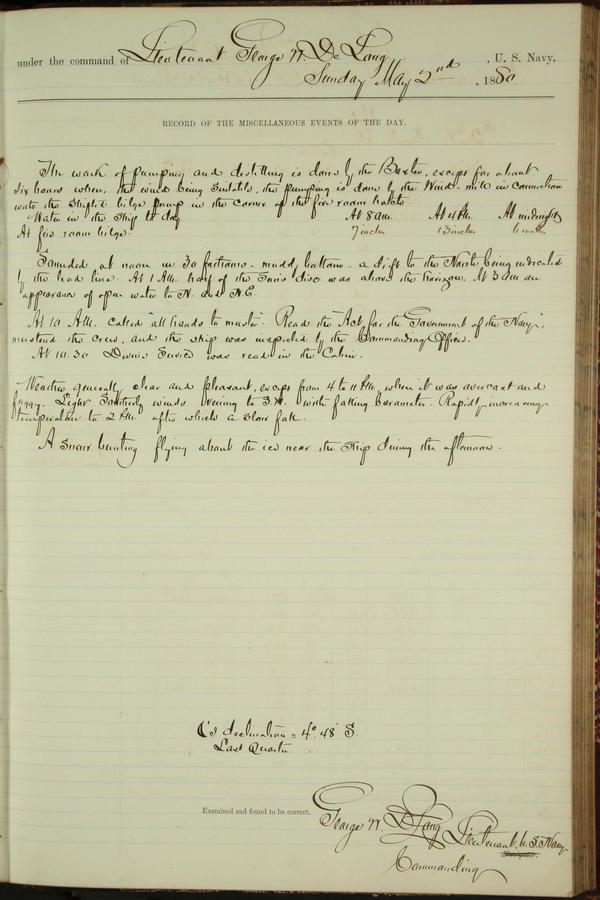 under the command of Lieutenant George W. De Long, U. S. Navy,
Sunday May 2nd, 1880
RECORD OF THE MISCELLANEOUS EVENTS OF THE DAY.
The work of pumping and distilling is done by the Baxter, except for about
six hours when, the wind being suitable, the pumping is done by the Wind-mill in connection
with the bilge pump in the corner of the fire room hatch.
Water in the ship to day At 8 am. At 4 P.M. At midnight
At fire room bilge. 7 inches 13 inches 6 inches
Sounded at noon in 30 fathoms - muddy bottom - a drift to the North being indicated
by the lead line. At 1 A.M. half of the Sun's disc was above the horizon. At 3 am an
appearance of open water to N. and N.E.
At 10 A.M. called "all hands to muster". Read the "Act for the Government of the Navy",
mustered the crew, and the ship was inspected by the Commanding Officer.
At 10.30 Divine Service was read in the Cabin.
Weather generally clear and pleasant, except from 4 to 11 P.M. when it was overcast and
foggy. Light Southerly winds veering to S.W. with falling barometer. Rapidly increasing
temperature to 2 P.M. after which a slow fall.
A snow bunting flying about the ice near the ship during the afternoon.
☾'s declination = 4° 48' S.
Last Quarter.
Examined and found to be correct.
George W. De Long Lieutenant, U.S. Navy
Navigator.
Commanding